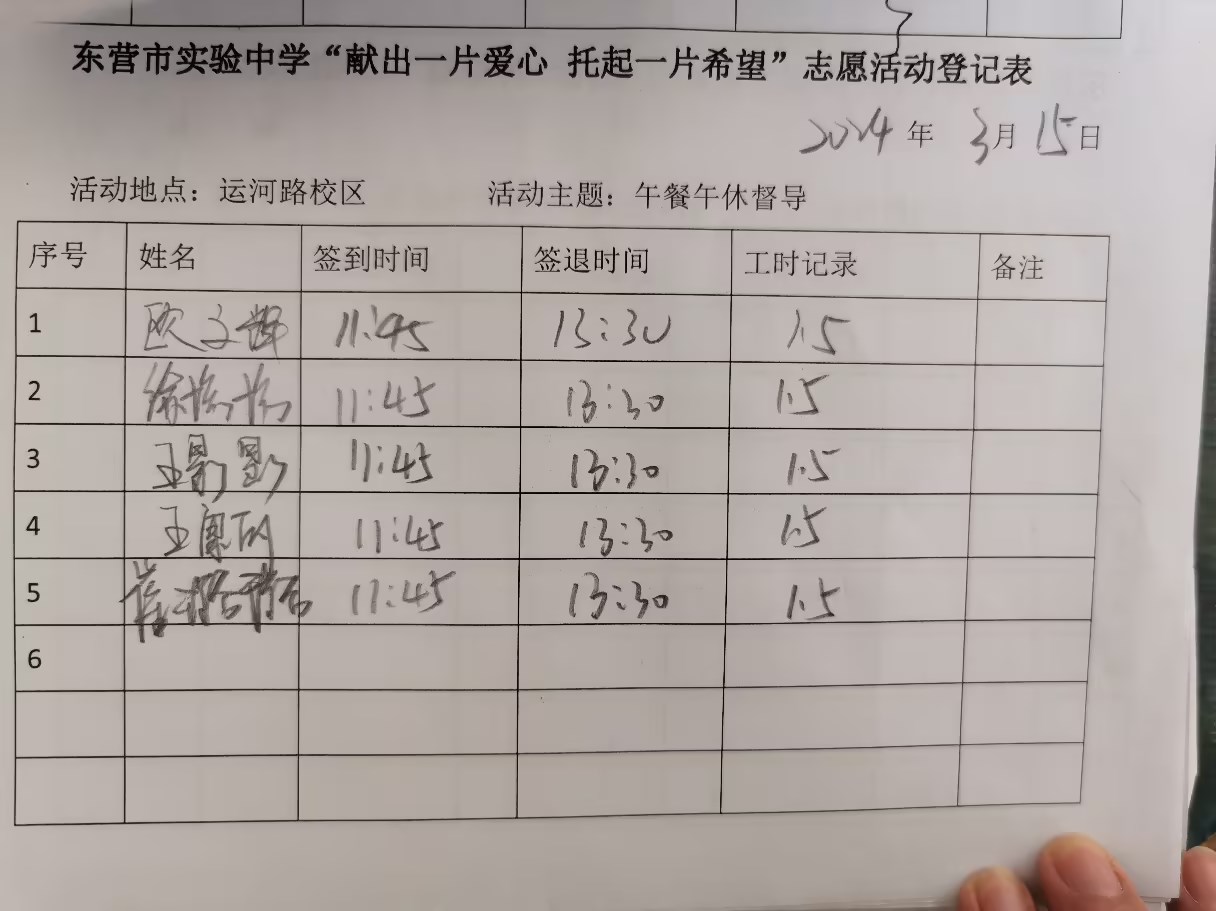 东营市实验中学“献出一片爱心 托起一片希望”志愿活动登记表
2024 年 3月 15日
活动地点：运河路校区 活动主题：午餐午休督导
序号 姓名 签到时间 签退时间 工时记录 备注
1 欧文辉 11:45 13:30 1.5
2 徐 11:45 13:30 1.5
3 王 11:45 13:30 1.5
4 王 11:45 13:30 1.5
5 崔 11:45 13:30 1.5
6